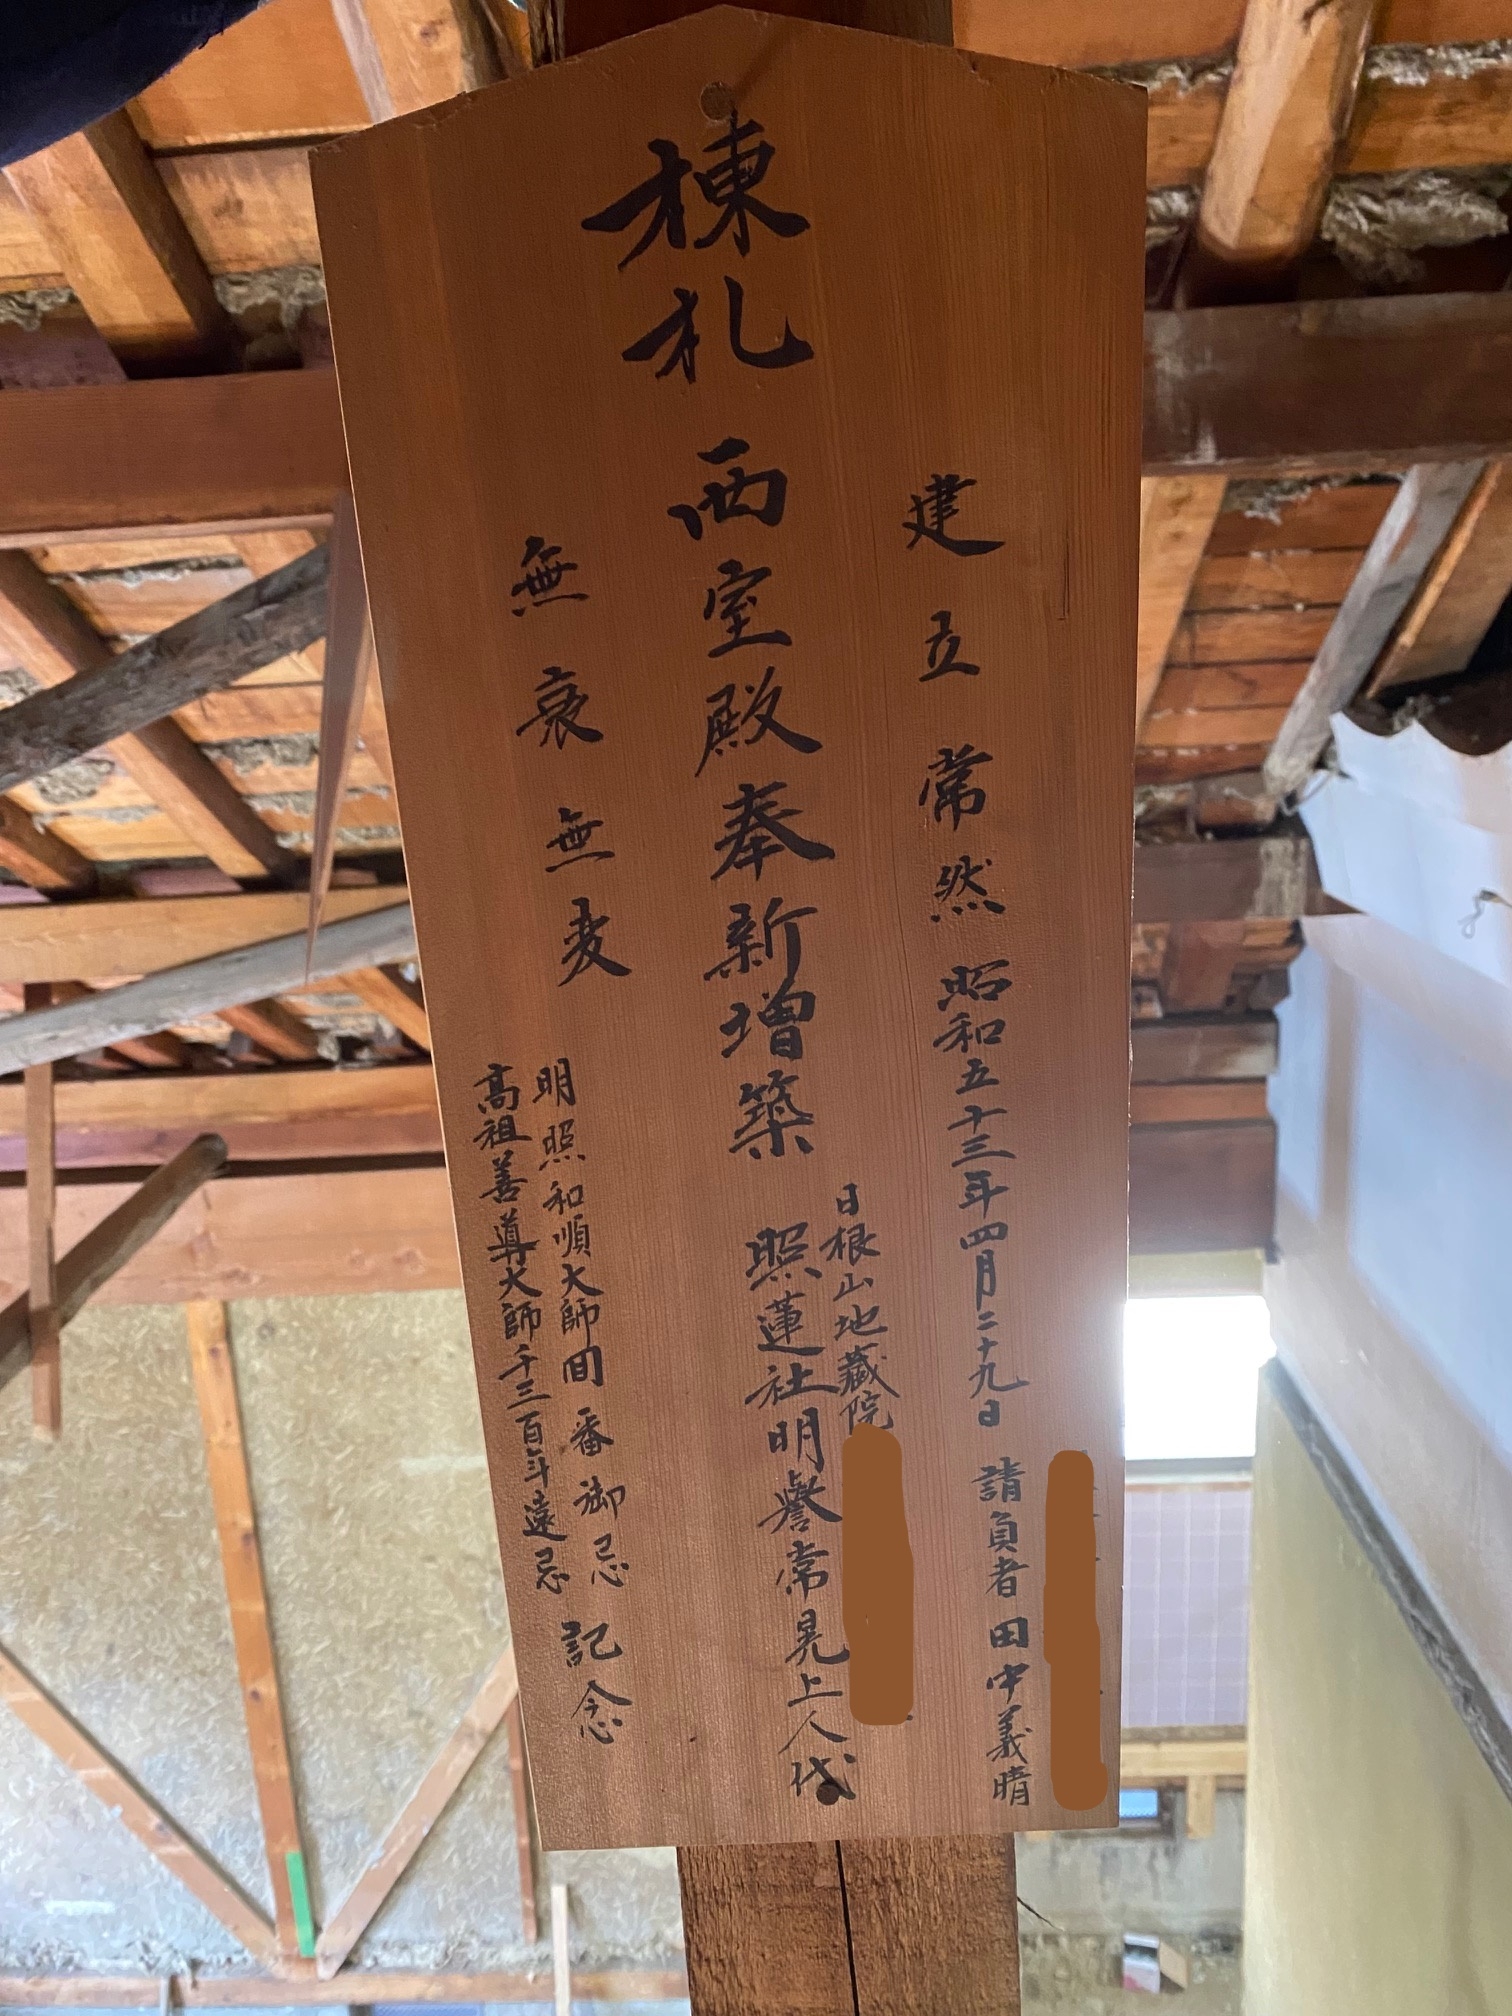 棟札
建立常然 昭和五十三年四月二十九日 請負者 田中義晴
西室殿奉新増築
日根山地蔵院
照蓮社明譽常晃上人代
無衰無変
明照和順大師 番御忌
高祖善導大師千三百年遠忌
記念